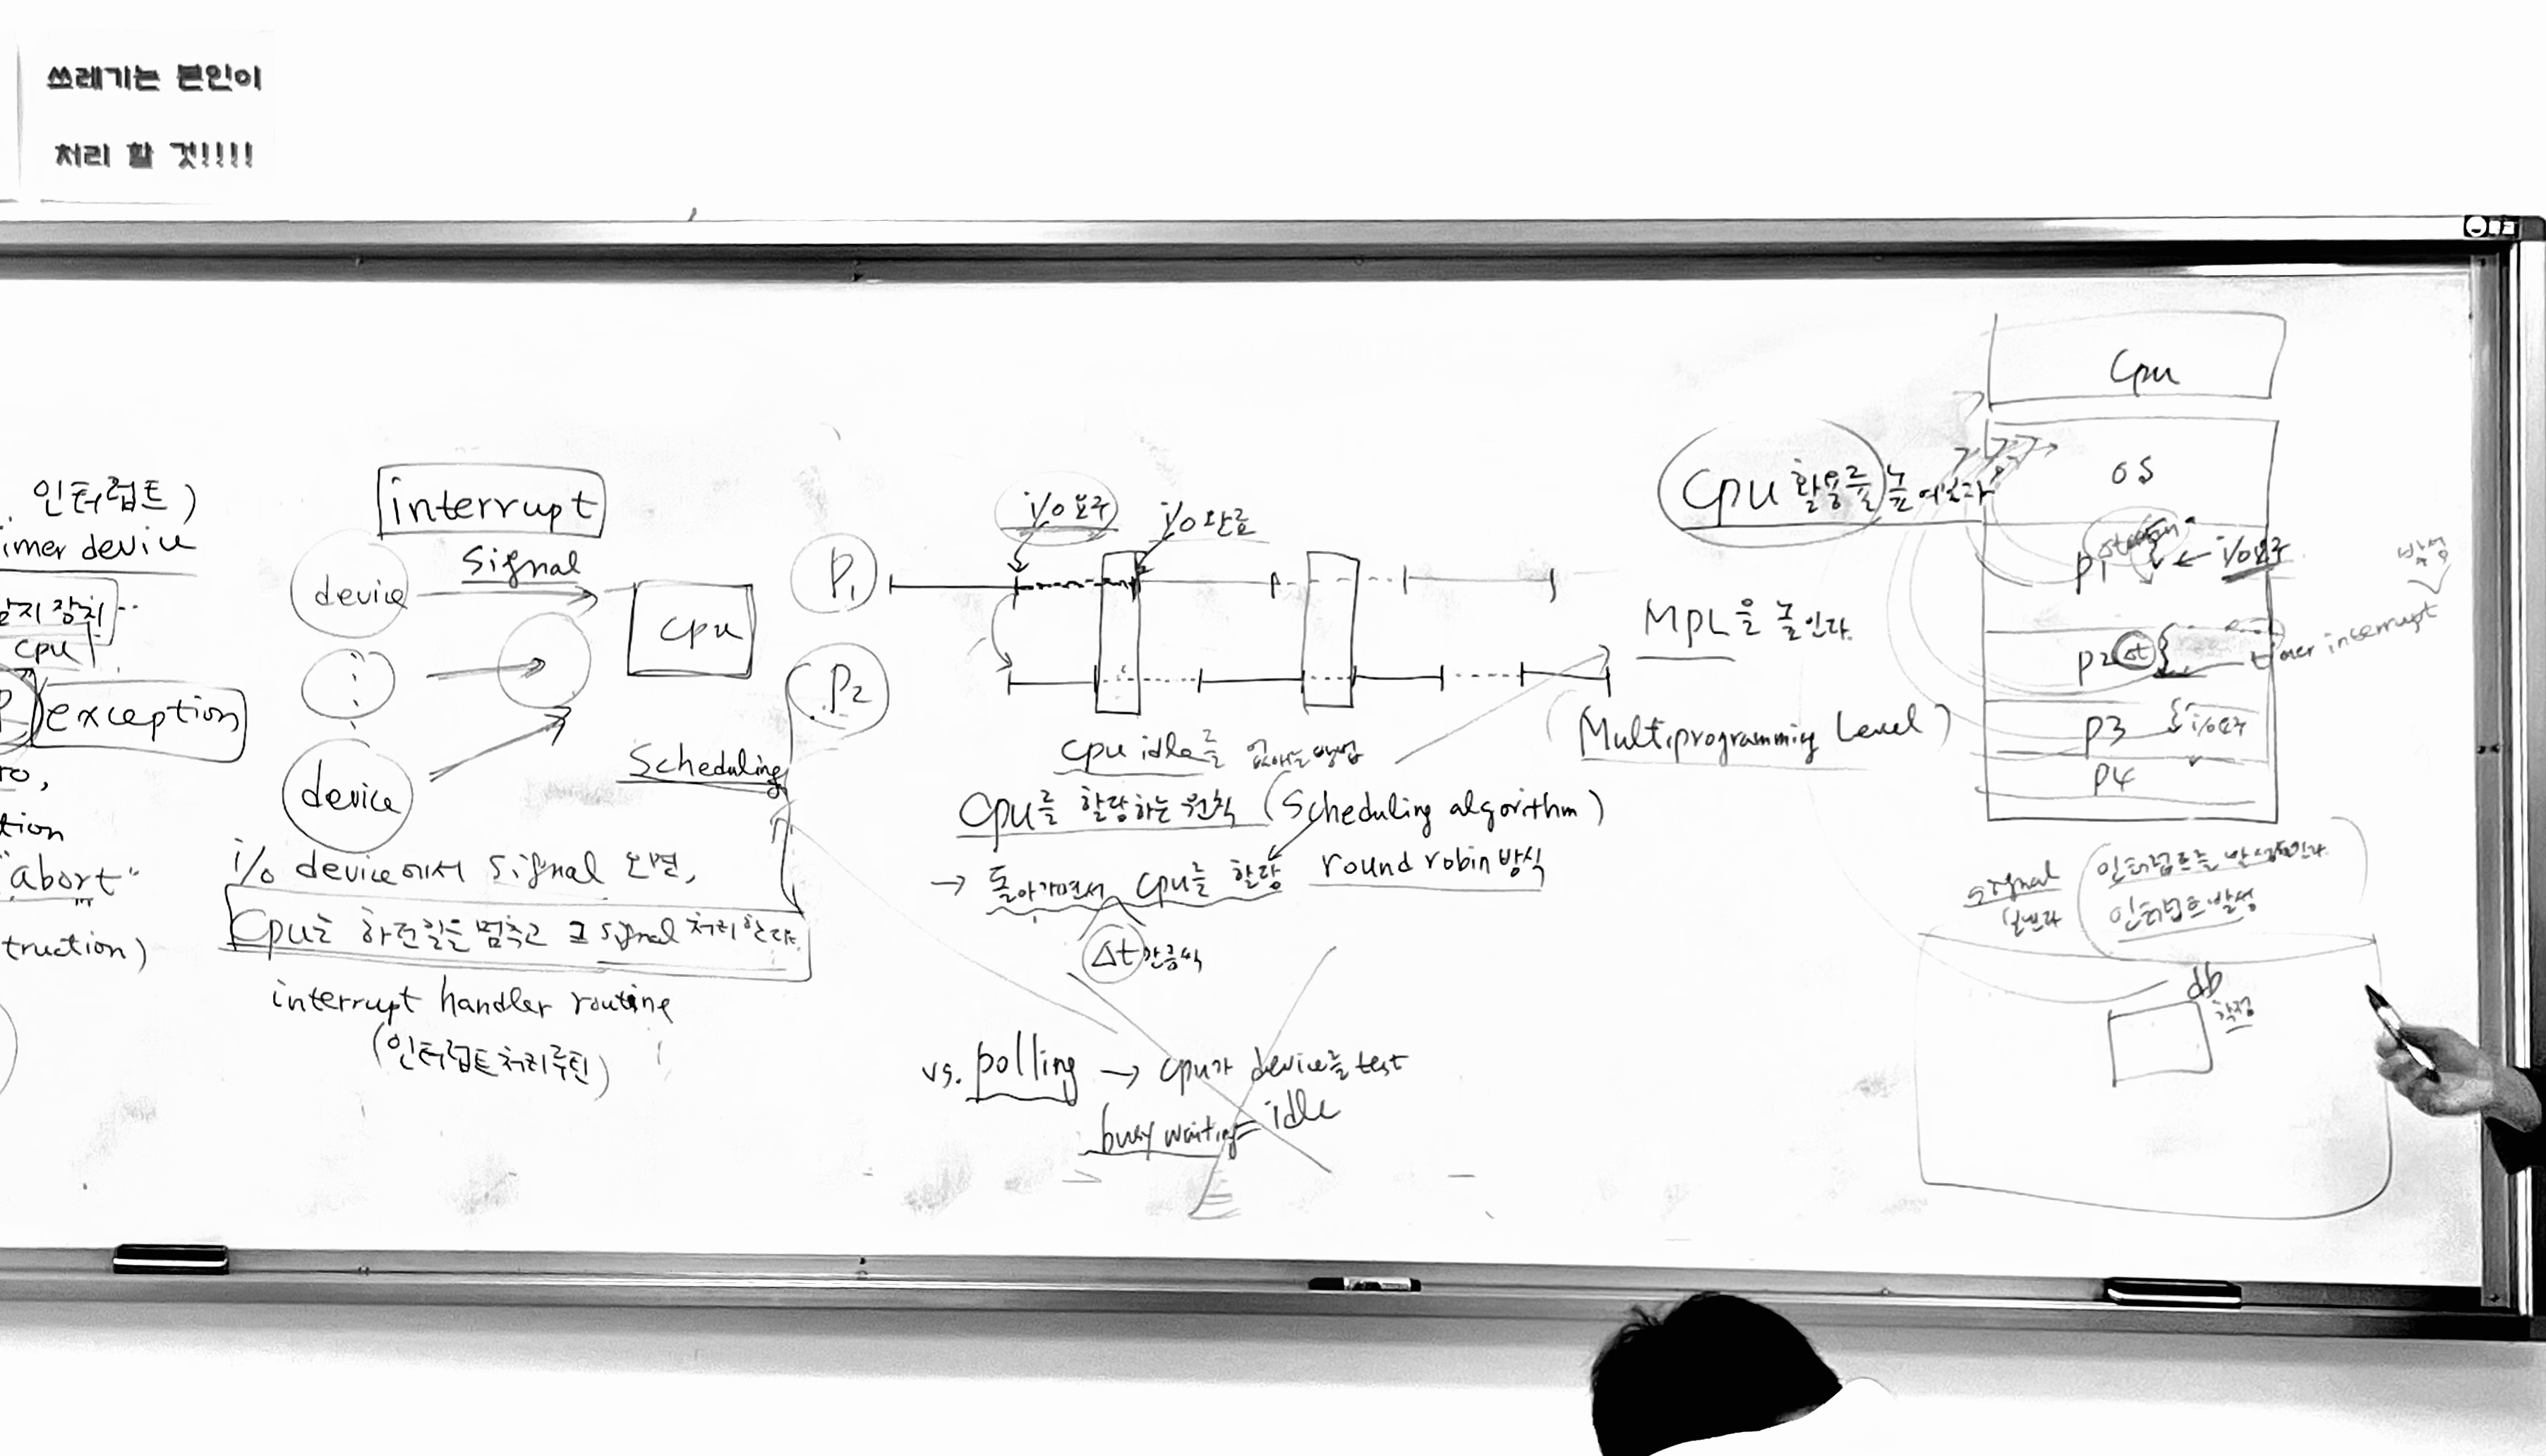 쓰레기는 본인이
처리 할 것!!!!
인터럽트)
imer device
장치
cpu
exception
ro,
tion
"abort"
truction)
interrupt
device
signal
cpu
device
Scheduling
i/o device에서 signal 오면,
cpu는 하던일을 멈추고 그 signal 처리한다.
interrupt handler routine
(인터럽트처리루틴)
P1
i/o 요구
i/o 완료
P2
cpu idle를 없애는 방법
cpu를 할당하는 원칙 (Scheduling algorithm)
→ 돌아가면서 cpu를 할당 round robin 방식
Δt 만큼씩
vs. polling → cpu가 device를 test
busy waiting = idle
cpu 활용률을
MPL을 높인다.
(Multiprogramming Level)
cpu
OS
P1
← i/o요구
P2
Δt
timer interrupt
발생
P3
i/o요구
P4
signal
보낸다
인터럽트를 발생시킨다.
인터럽트 발생
db